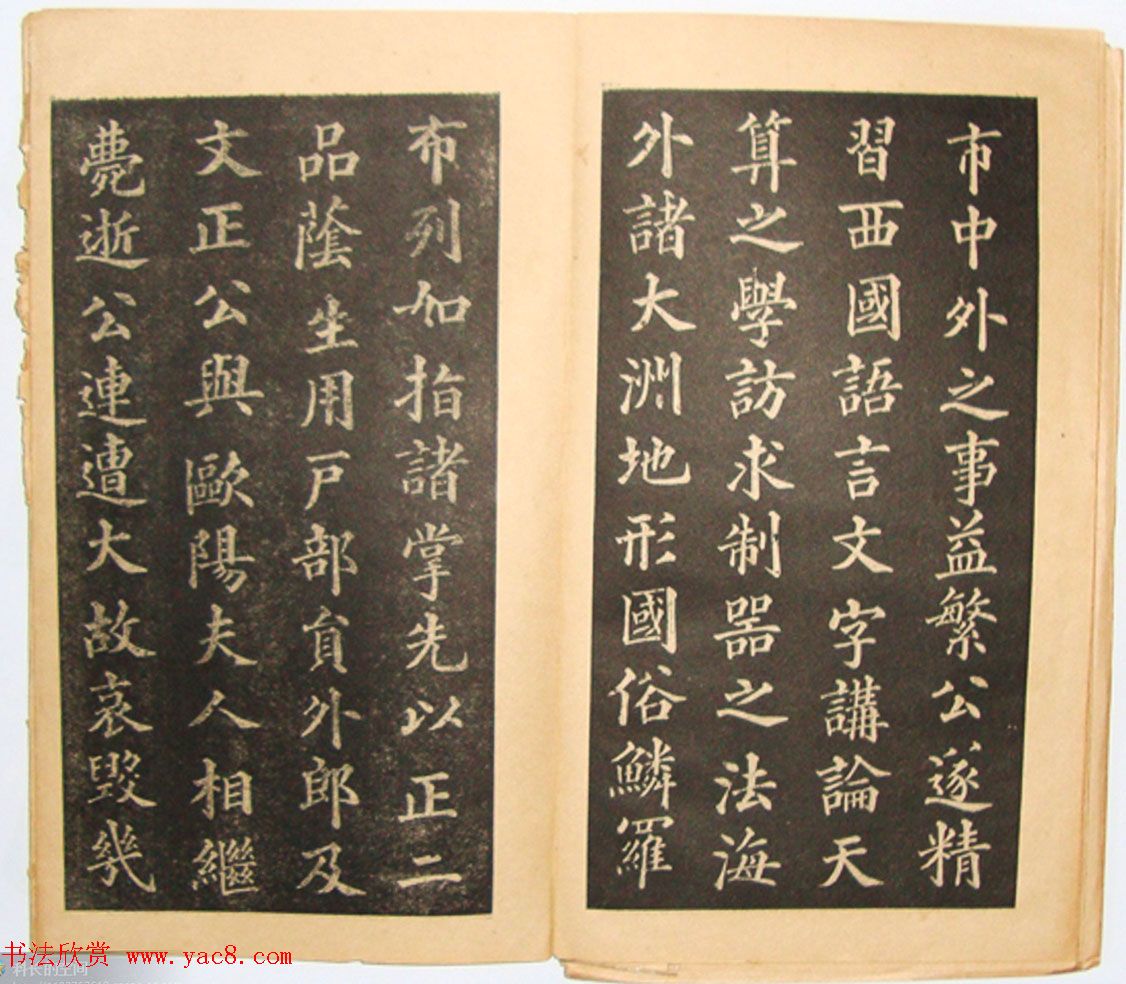 市中外之事益繁公遂精
習西國語言文字講論天
算之學訪求制器之法海
外諸大洲地形國俗鱗羅
布列如指諸掌先以正二
品蔭生用戶部員外郎及
文正公與歐陽夫人相繼
薨逝公連遭大故哀毀幾
书法欣赏 www.yac8.com
科长的空间